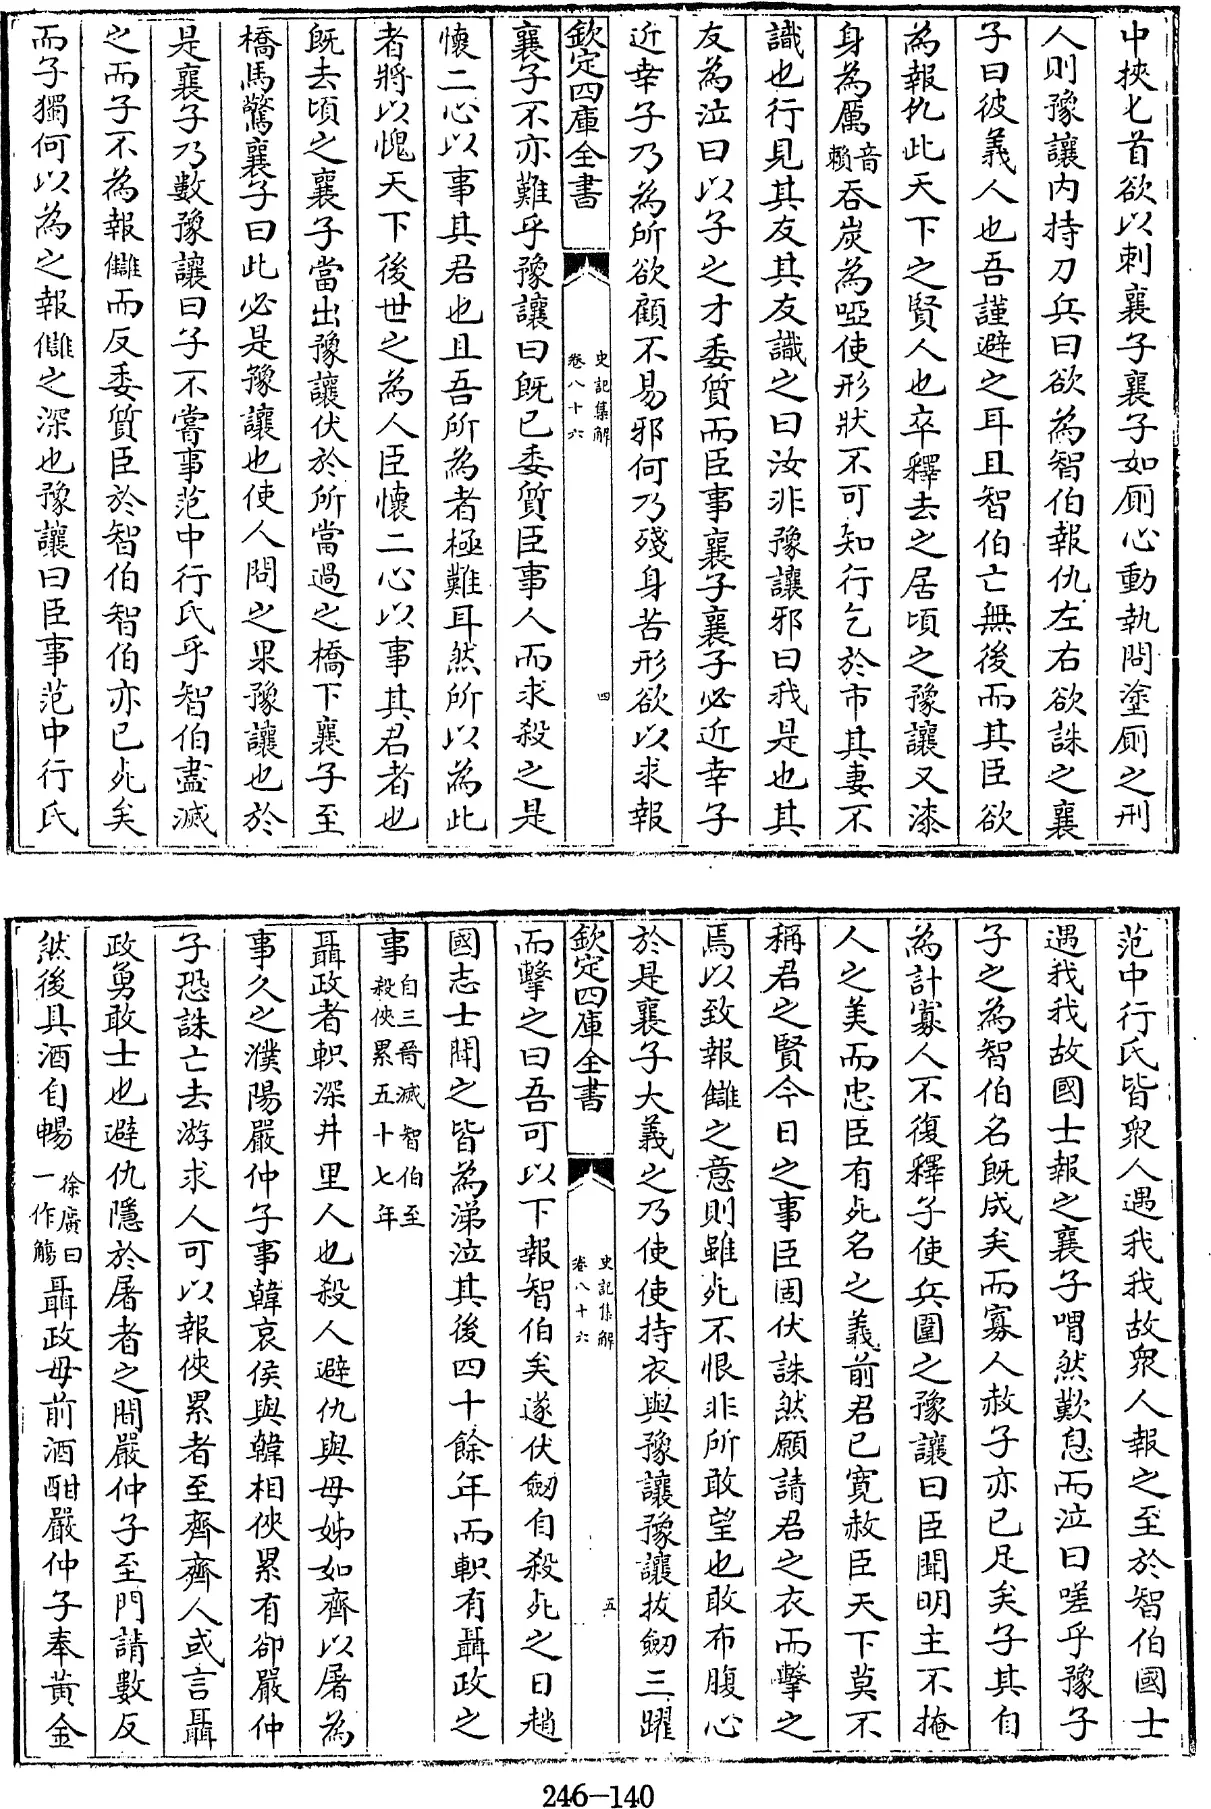 中挾匕首欲以刺襄子襄子如厠心動執問塗厠之刑
人則豫讓内持刀兵曰欲為智伯報仇左右欲誅之襄
子曰彼義人也吾謹避之耳且智伯亡無後而其臣欲
為報仇此天下之賢人也卒釋去之居頃之豫讓又漆
身為厲音賴吞炭為啞使形狀不可知行乞於市其妻不
識也行見其友其友識之曰汝非豫讓邪曰我是也其
友為泣曰以子之才委質而臣事襄子襄子必近幸子
近幸子乃為所欲顧不易邪何乃殘身苦形欲以求報
欽定四庫全書 史記集解 卷八十六 四
襄子不亦難乎豫讓曰既已委質臣事人而求殺之是
懷二心以事其君也且吾所為者極難耳然所以為此
者將以愧天下後世之為人臣懷二心以事其君者也
既去頃之襄子當出豫讓伏於所當過之橋下襄子至
橋馬驚襄子曰此必是豫讓也使人問之果豫讓也於
是襄子乃數豫讓曰子不嘗事范中行氏乎智伯盡滅
之而子不為報讎而反委質臣於智伯智伯亦已死矣
而子獨何以為之報讎之深也豫讓曰臣事范中行氏
范中行氏皆衆人遇我我故衆人報之至於智伯國士
遇我我故國士報之襄子喟然歎息而泣曰嗟乎豫子
子之為智伯名既成矣而寡人赦子亦已足矣子其自
為計寡人不復釋子使兵圍之豫讓曰臣聞明主不掩
人之美而忠臣有死名之義前君已寛赦臣天下莫不
稱君之賢今日之事臣固伏誅然願請君之衣而擊之
焉以致報讎之意則雖死不恨非所敢望也敢布腹心
於是襄子大義之乃使使持衣與豫讓豫讓拔劒三躍
欽定四庫全書 史記集解 卷八十六 五
而擊之曰吾可以下報智伯矣遂伏劒自殺死之日趙
國志士聞之皆為涕泣其後四十餘年而軹有聶政之
事自三晉滅智伯至殺俠累五十七年
聶政者軹深井里人也殺人避仇與母姊如齊以屠為
事久之濮陽嚴仲子事韓哀侯與韓相俠累有卻嚴仲
子恐誅亡去游求人可以報俠累者至齊齊人或言聶
政勇敢士也避仇隱於屠者之間嚴仲子至門請數反
然後具酒自暢徐廣曰一作觴聶政母前酒酣嚴仲子奉黄金
246-140